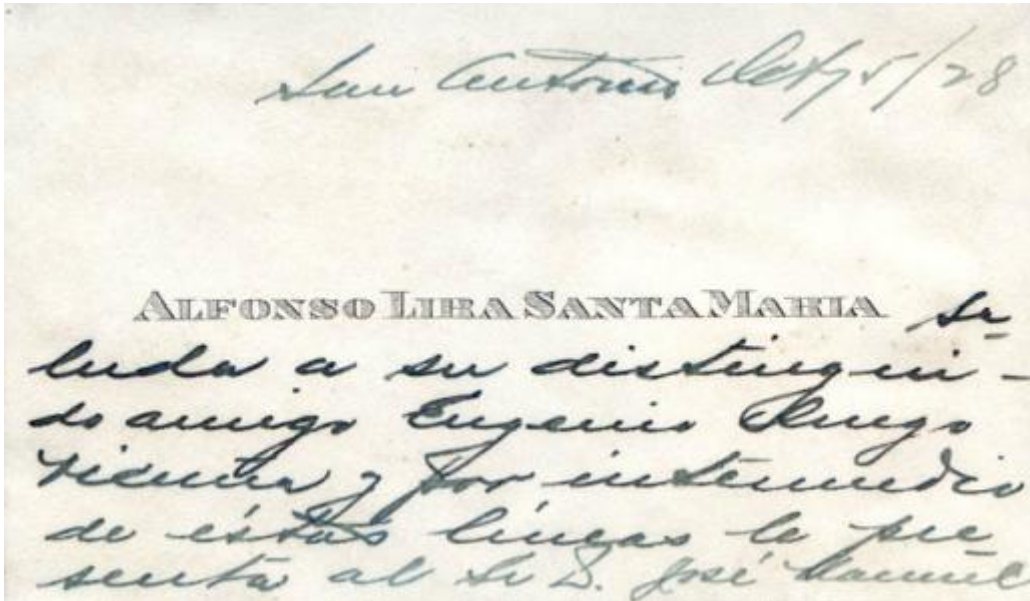 San Antonio Oct 5/28
ALFONSO LIRA SANTA MARIA sa-
luda a su distingui-
do amigo Eugenio Orrego
Vicuña y por intermedio
de éstas líneas le pre-
senta al Sr D. José Manuel